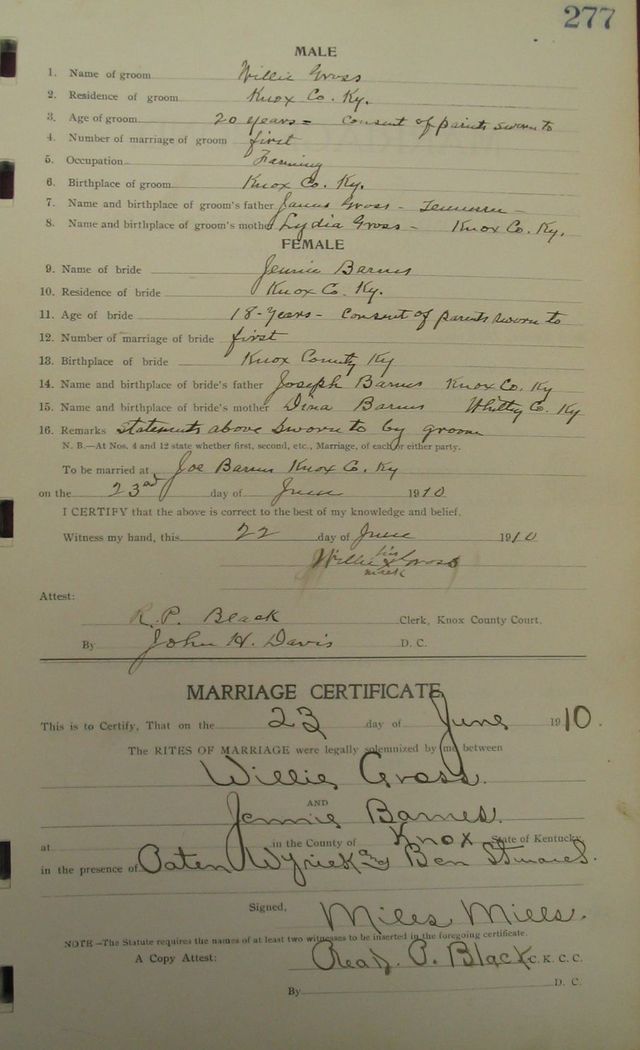 277
MALE
1. Name of groom Willie Gross
2. Residence of groom Knox Co. Ky.
3. Age of groom 20 years = consent of parents sworn to
4. Number of marriage of groom first
5. Occupation Farming
6. Birthplace of groom Knox Co. Ky.
7. Name and birthplace of groom's father James Gross - Tennessee -
8. Name and birthplace of groom's mother Lydia Gross - Knox Co. Ky.
FEMALE
9. Name of bride Jennie Barnes
10. Residence of bride Knox Co. Ky.
11. Age of bride 18-years - consent of parents sworn to
12. Number of marriage of bride first
13. Birthplace of bride Knox County Ky
14. Name and birthplace of bride's father Joseph Barnes Knox Co. Ky
15. Name and birthplace of bride's mother Dina Barnes Whitly Co. Ky
16. Remarks statements above sworn to by groom
N. B.—At Nos. 4 and 12 state whether first, second, etc., Marriage, of each or either party.
To be married at Joe Barnes Knox Co. Ky
on the 23rd day of June 1910
I CERTIFY that the above is correct to the best of my knowledge and belief.
Witness my hand, this 22 day of June 1910
his
Willie x Gross
mark
Attest:
R. P. Black Clerk, Knox County Court.
By John H. Davis D. C.
MARRIAGE CERTIFICATE
This is to Certify, That on the 23 day of June 1910.
The RITES OF MARRIAGE were legally solemnized by me between
Willie Gross.
AND
Jennie Barnes.
at in the County of Knox State of Kentucky
in the presence of Oaten Wyriek and Ben
Signed, Miles Mills.
NOTE—The Statute requires the names of at least two witnesses to be inserted in the foregoing certificate.
A Copy Attest: Read. P. Black C. K. C. C.
By D. C.